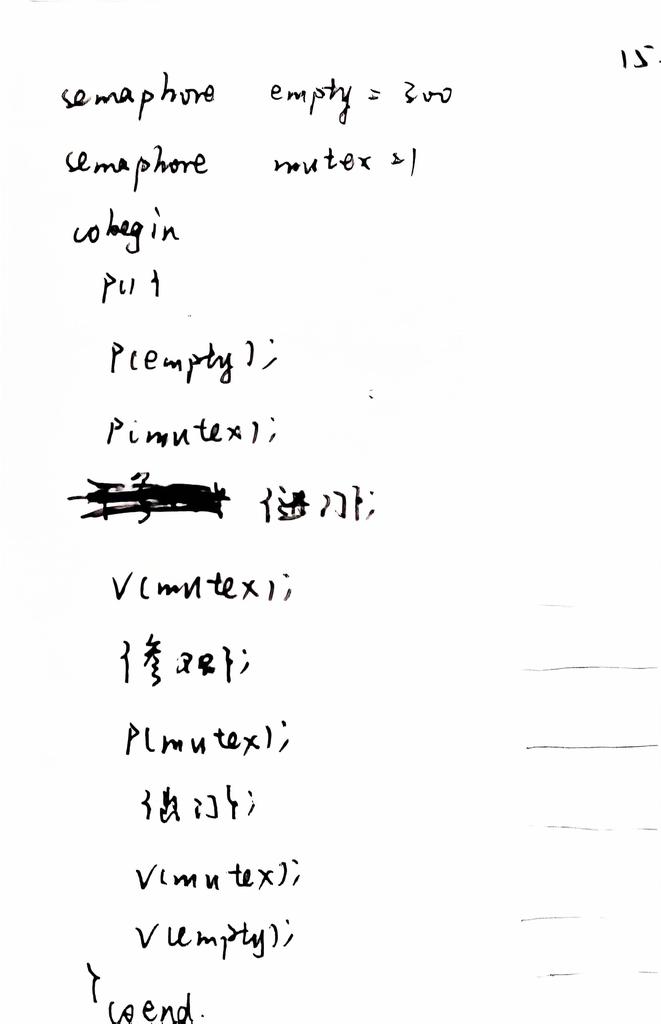 15.
semaphore empty = 300
semaphore mutex = 1
cobegin
P() {
P(empty);
P(mutex);
{进门};
V(mutex);
{参观};
P(mutex);
{出门};
V(mutex);
V(empty);
}
coend.